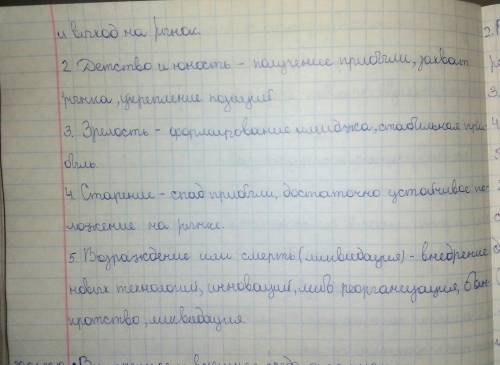 и выход на рынок.
2. Детство и юность - получение прибыли, захват
рынка, укрепление позиций
3. Зрелость - формирование имиджа, стабильная при
быль.
4. Старение - спад прибыли, достаточно устойчивое по-
ложение на рынке.
5. Возраждение или смерть (ликвидация) - внедрение
новых технологий, инноваций, либо реорганизация, бан
кротство, ликвидация.